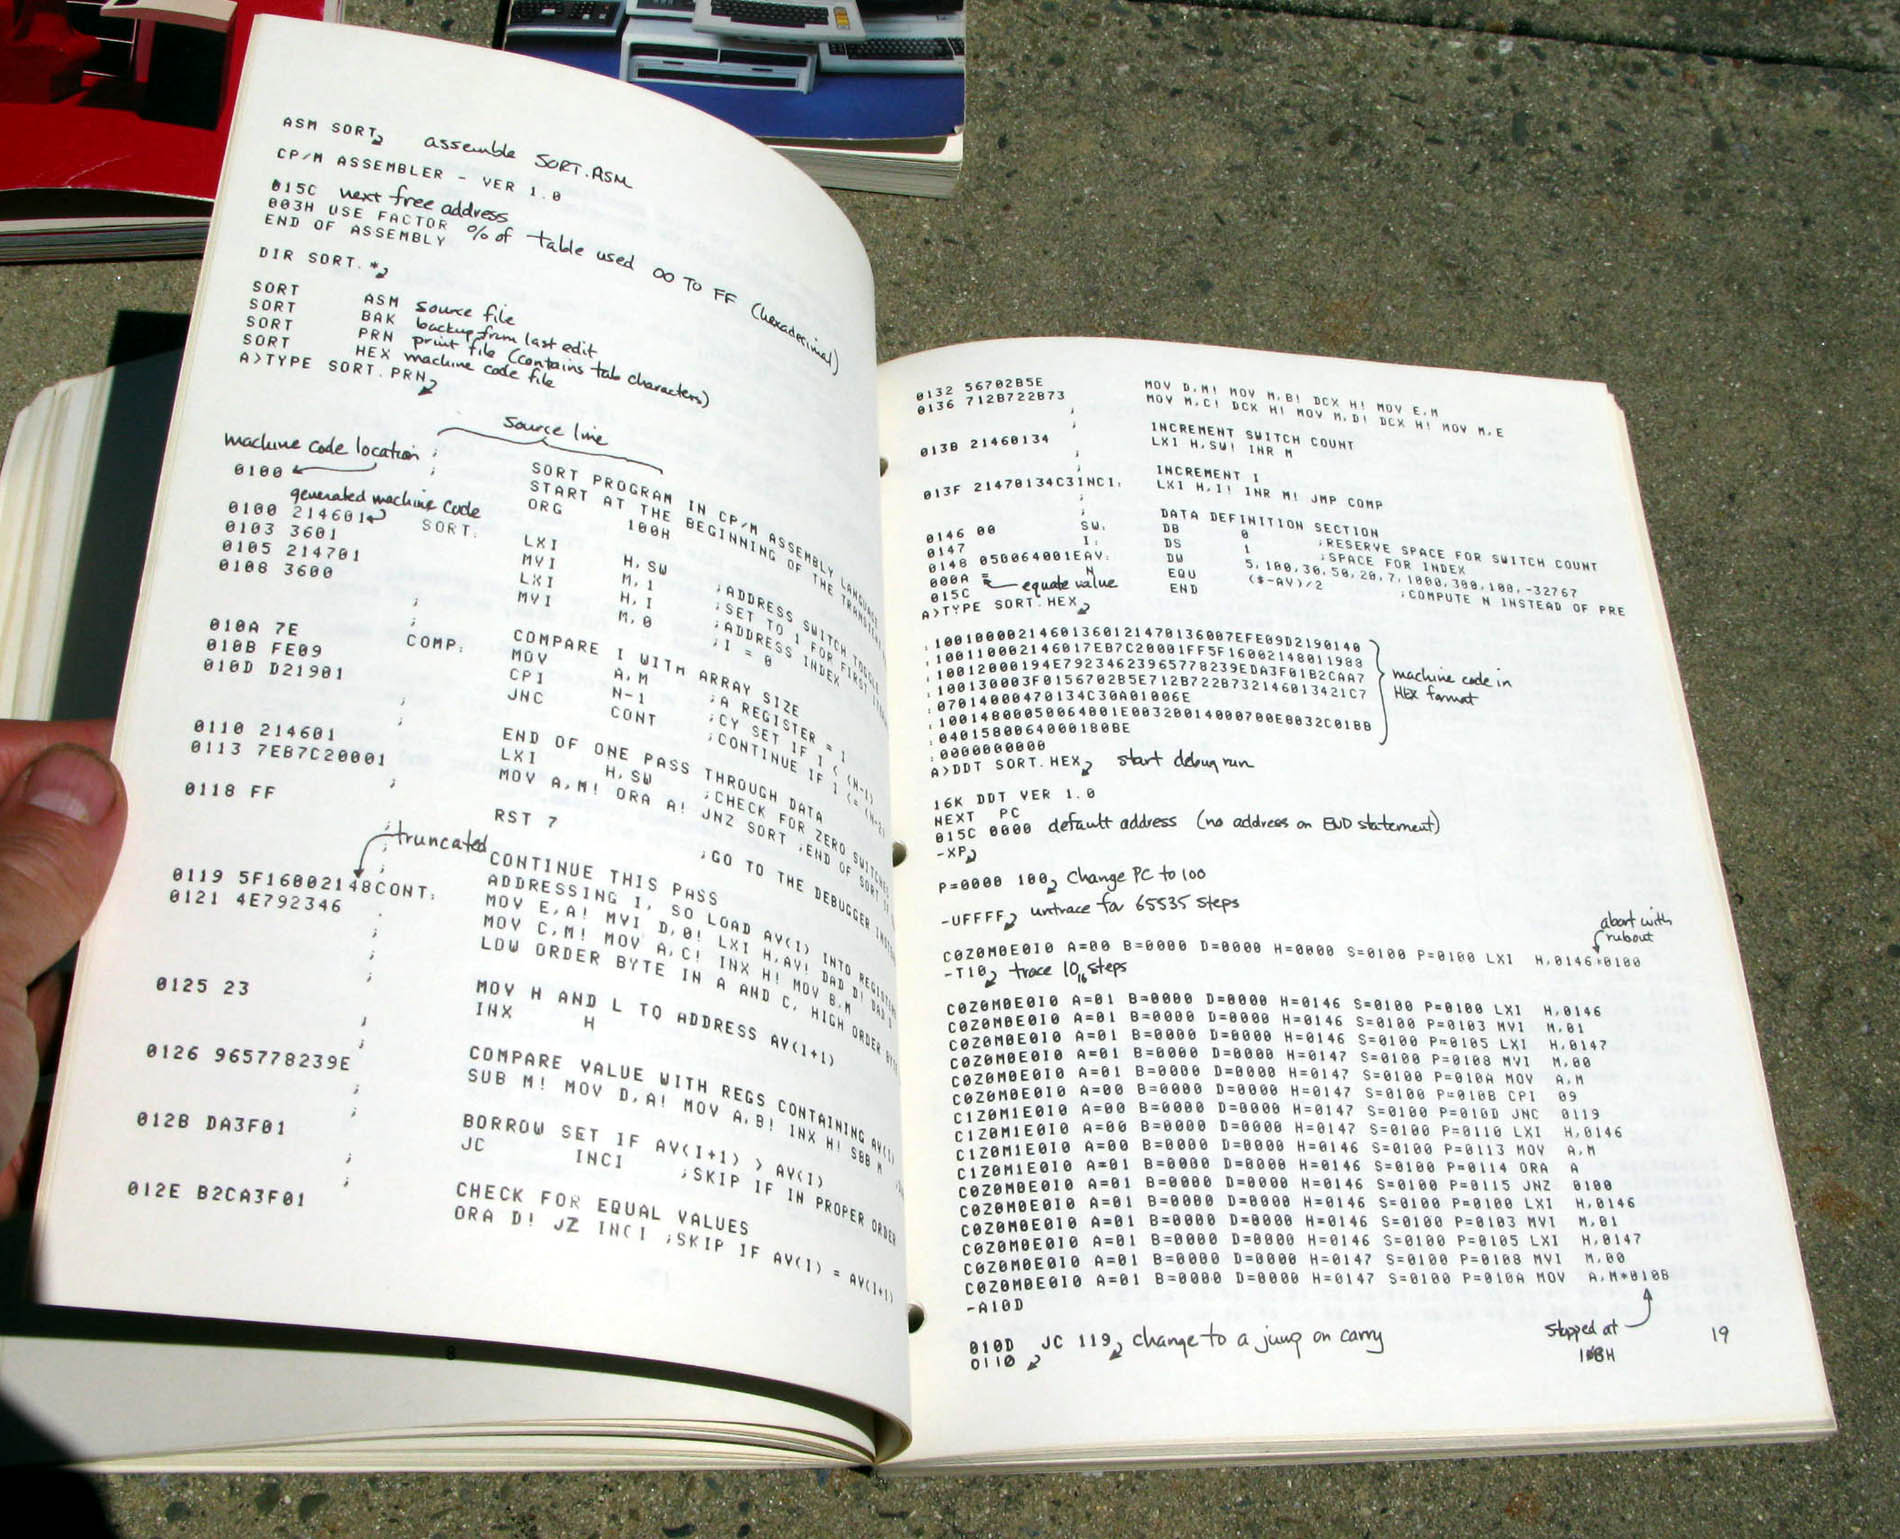 ASM SORT assemble SORT.ASM
CP/M ASSEMBLER - VER 1.0
015C next free address
003H USE FACTOR % of table used 00 TO FF (hexadecimal)
END OF ASSEMBLY
DIR SORT.*
SORT ASM source file
SORT BAK backup from last edit
SORT PRN print file (contains tab characters)
SORT HEX machine code file
A>TYPE SORT.PRN
source line
machine code location ;
; SORT PROGRAM IN CP/M ASSEMBLY LANGUAGE
; START AT THE BEGINNING OF THE
0100 ORG 100H
generated machine code
0100 214601 SORT: LXI H,SW ;ADDRESS SWITCH TOGGLE
0103 3601 MVI M,1 ;SET TO 1 FOR FIRST
0105 214701 LXI H,I ;ADDRESS INDEX
0108 3600 MVI M,0 ;I = 0
;
; COMPARE I WITH ARRAY SIZE
010A 7E COMP: MOV A,M ;A REGISTER = I
010B FE09 CPI N-1 ;CY SET IF I < (N-1)
010D D21901 JNC CONT ;CONTINUE IF I <= (N-2)
;
; END OF ONE PASS THROUGH DATA
0110 214601 LXI H,SW ;CHECK FOR ZERO SWITCHES
0113 7EB7C20001 MOV A,M! ORA A! JNZ SORT ;END OF SORT IF
;
0118 FF RST 7 ;GO TO THE DEBUGGER
;
truncated
; CONTINUE THIS PASS
; ADDRESSING I, SO LOAD AV(I) INTO
0119 5F16002148CONT: MOV E,A! MVI D,0! LXI H,AV! DAD D! DAD
0121 4E792346 MOV C,M! MOV A,C! INX H! MOV B,M
; LOW ORDER BYTE IN A AND C, HIGH ORDER
;
; MOV H AND L TO ADDRESS AV(I+1)
0125 23 INX H
;
; COMPARE VALUE WITH REGS CONTAINING AV(I)
0126 965778239E SUB M! MOV D,A! MOV A,B! INX H! SBB M
;
; BORROW SET IF AV(I+1) > AV(I)
012B DA3F01 JC INCI ;SKIP IF IN PROPER ORDER
;
; CHECK FOR EQUAL VALUES
012E B2CA3F01 ORA D! JZ INCI ;SKIP IF AV(I) = AV(I+1)
0132 56702B5E MOV D,M! MOV M,B! DCX H! MOV E,M
0136 712B722B73 MOV M,C! DCX H! MOV M,D! DCX H! MOV M,E
;
; INCREMENT SWITCH COUNT
013B 21460134 LXI H,SW! INR M
;
; INCREMENT I
013F 21470134C3INCI: LXI H,I! INR M! JMP COMP
;
; DATA DEFINITION SECTION
0146 00 SW: DB 0 ;RESERVE SPACE FOR SWITCH COUNT
0147 I: DS 1 ;SPACE FOR INDEX
0148 050064001EAV: DW 5,100,30,50,20,7,1000,300,100,-32767
000A = N EQU ($-AV)/2 ;COMPUTE N INSTEAD OF PRE
equate value
015C END
A>TYPE SORT.HEX
:10010000214601360121470136007EFE09D2190140
:100110002146017EB7C20001FF5F16002148011988
:10012000194E79234623965778239EDA3F01B2CAA7
:100130003F0156702B5E712B722B73214601342​1C7
:07014000470134C30A01006E
:10014800050064001E00320014000700E8032C01BB
:0401580064000180BE
:0000000000
machine code in
HEX format
A>DDT SORT.HEX start debug run
16K DDT VER 1.0
NEXT PC
015C 0000 default address (no address on END statement)
-XP
P=0000 100 change PC to 100
-UFFFF untrace for 65535 steps
abort with
rubout
C0Z0M0E0I0 A=00 B=0000 D=0000 H=0000 S=0100 P=0100 LXI H,0146*0100
-T10 trace 10₁₆ steps
C0Z0M0E0I0 A=01 B=0000 D=0000 H=0146 S=0100 P=0100 LXI H,0146
C0Z0M0E0I0 A=01 B=0000 D=0000 H=0146 S=0100 P=0103 MVI M,01
C0Z0M0E0I0 A=01 B=0000 D=0000 H=0146 S=0100 P=0105 LXI H,0147
C0Z0M0E0I0 A=01 B=0000 D=0000 H=0147 S=0100 P=0108 MVI M,00
C0Z0M0E0I0 A=01 B=0000 D=0000 H=0147 S=0100 P=010A MOV A,M
C0Z0M0E0I0 A=00 B=0000 D=0000 H=0147 S=0100 P=010B CPI 09
C1Z0M1E0I0 A=00 B=0000 D=0000 H=0147 S=0100 P=010D JNC 0119
C1Z0M1E0I0 A=00 B=0000 D=0000 H=0147 S=0100 P=0110 LXI H,0146
C1Z0M1E0I0 A=00 B=0000 D=0000 H=0146 S=0100 P=0113 MOV A,M
C1Z0M1E0I0 A=01 B=0000 D=0000 H=0146 S=0100 P=0114 ORA A
C0Z0M0E0I0 A=01 B=0000 D=0000 H=0146 S=0100 P=0115 JNZ 0100
C0Z0M0E0I0 A=01 B=0000 D=0000 H=0146 S=0100 P=0100 LXI H,0146
C0Z0M0E0I0 A=01 B=0000 D=0000 H=0146 S=0100 P=0103 MVI M,01
C0Z0M0E0I0 A=01 B=0000 D=0000 H=0146 S=0100 P=0105 LXI H,0147
C0Z0M0E0I0 A=01 B=0000 D=0000 H=0147 S=0100 P=0108 MVI M,00
C0Z0M0E0I0 A=01 B=0000 D=0000 H=0147 S=0100 P=010A MOV A,M*010B
-A10D
stopped at
10BH
010D JC 119 change to a jump on carry
0110
19
8